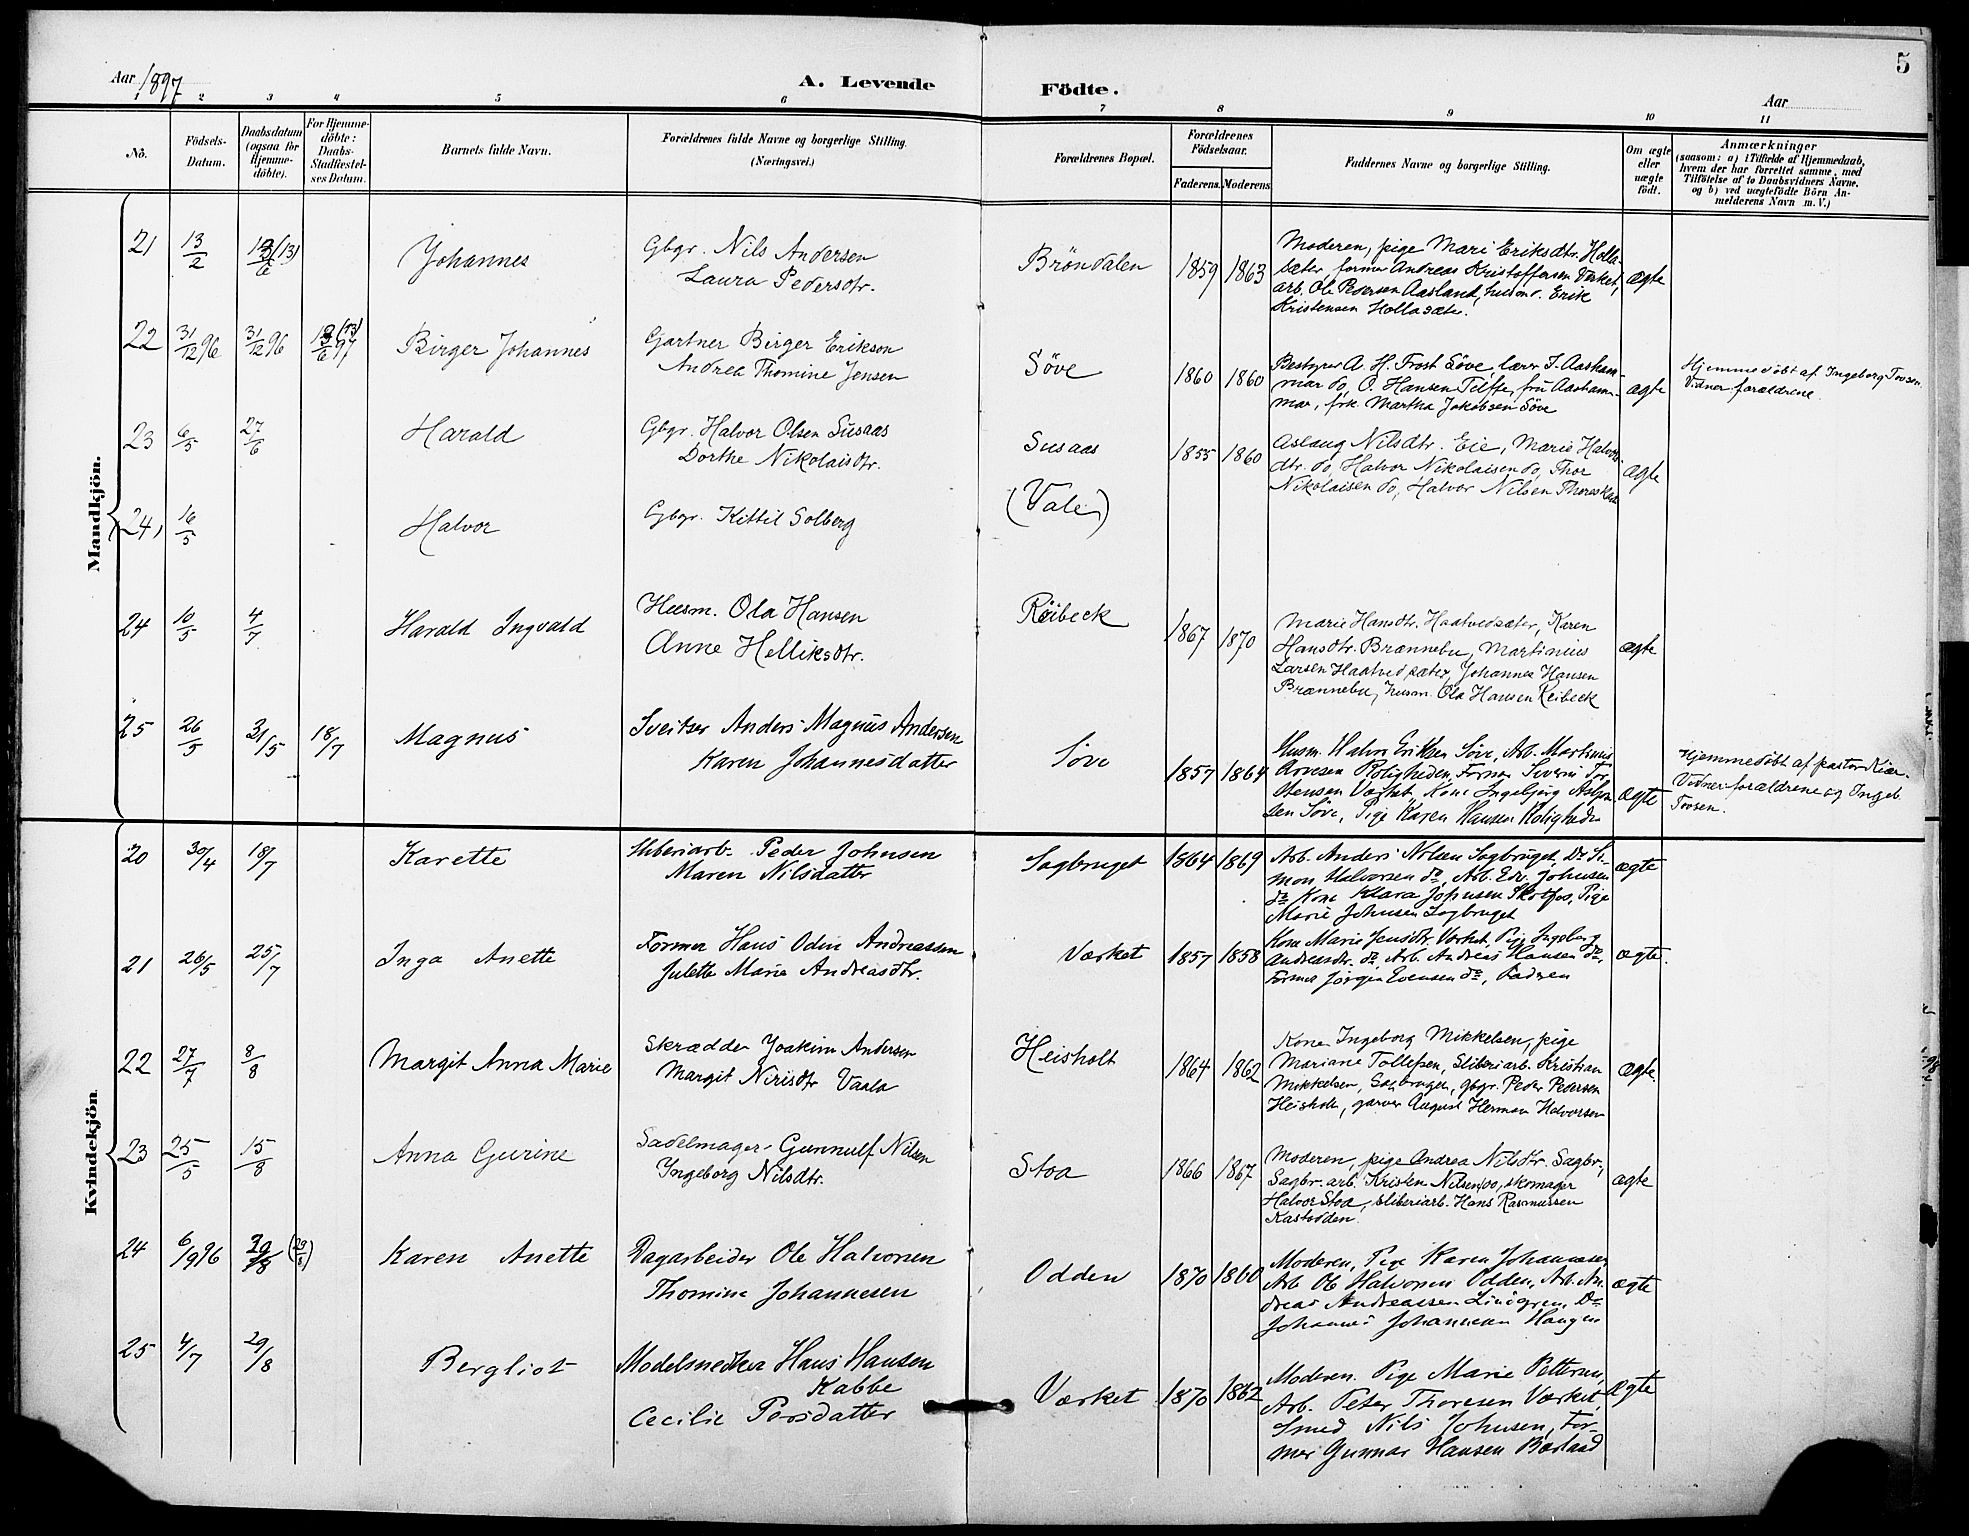 5
Aar 1897
A. Levende Födte.
Aar
1 2 3 4 5 6 7 8 9 10 11
No.
Födsels-
Datum.
Daabsdatum
(ogsaa for
Hjemme-
döbte).
For Hjemme-
döbte:
Daabs-
Stadfæstel-
ses Datum.
Barnets fulde Navn.
Forældrenes fulde Navne og borgerlige Stilling.
(Næringsvei.)
Forældrenes Bopæl.
Forældrenes
Födselsaar.
Faderens. Moderens.
Faddernes Navne og borgerlige Stilling.
Om ægte
eller
uægte
födt.
Anmærkninger
(saasom: a) i Tilfælde af Hjemmedaab,
hvem der har forrettet samme, med
Tilföielse af to Daabsvidners Navne,
og b) ved uægtefödte Börn An-
melderens Navn m. V.)
Mandkjön.
21 13/2 (13) Johannes
Gbgr. Nils Andersen
Laura Pedersdtr.
Bröndalen 1859 1863
Moderen, pige Mari Eriksdtr. Holla-
sæter, former Andreas Kristoffersen Værket,
arb. Ole Pedersen Aasland, husm. Erik
Kristensen Hollasæter.
ægte
22 31/12 96 31/12 96 (13) 97 Birger Johannes
Gartner Birger Erikson
Andrea Thomine Jensen
Söve 1860 1860
Bestyrer A. H. Frost Söve, lærer J. Aasham-
mar do, O. Hansen Telffe, fru Aasham-
mar, frk. Martha Jakobsen Söve
ægte
Hjemmedöbt af Ingeborg Tovsen.
Vidner: forældrene.
23 6/5 27/6 Harald
Gbgr. Halvor Olsen Susaas
Dorthe Nikolaisdtr.
Susaas 1855 1860
Aslaug Nilsdtr. Eie, Marie Halvors-
dtr. do, Halvor Nikolaisen do, Thor
Nikolaisen do, Halvor Nilsen
ægte
24, 16/5 Halvor
Gbgr. Kittil Solberg
(Vale)
24 10/5 4/7 Harald Ingvald
Husm. Ola Hansen
Anne Helliksdtr.
Reibeck 1867 1870
Marie Hansdtr. Haatvedsæter, Karen
Hansdtr. Brænnebu, Martinius
Larsen Haatvedsæter, Johannes Hansen
Brænnebu, husm. Ola Hansen Reibeck
ægte
25 26/5 31/5 18/7 Magnus
Sveitser Anders Magnus Andersen
Karen Johannesdatter
Söve 1857 1864
Husm. Halvor Eriksen Söve, Arb. Martinus
Arvesen Roligheden, Former Severin Tor-
stensen Værket, Kone Ingebjørg
sen Söve, Pige Karen Hansen Roligheden
ægte
Hjemmedöbt af pastor Kiær.
Vidner: forældrene og Ingeb.
Tovsen.
Kvindekjön.
20 30/4 18/7 Karette
Sliberiarb. Peder Johnsen
Maren Nilsdatter
Sagbruget 1864 1869
Arb. Anders Nilsen Sagbruget, Do Si-
mon Halvorsen do, Arb. Edv. Johnsen
do Kone Klara Johnsen Skotfos, Pige
Marie Johnsen Sagbruget
ægte
21 26/5 25/7 Inga Anette
Former Hans Odin Andreassen
Julette Marie Andreasdtr.
Værket 1857 1858
Kone Marie Jensdtr. Værket, Pige Ingeborg
Andreasdtr. do, Arb. Andreas Hansen do,
Former Jörgen Evensen do, Faderen
ægte.
22 27/7 8/8 Margit Anna Marie
Skrædder Joakim Andersen
Margit Nirisdtr Vaala
Heisholt 1864 1862
Kone Ingeborg Mikkelsen, pige
Mariane Tollefsen, Sliberiarb. Kristian
Mikkelsen, Sagbruget, gbgr. Peder Pedersen
Heisholt, garver August Herman Halvorsen
ægte.
23 25/5 15/8 Anna Gurine
Sadelmager Gunnulf Nilsen
Ingeborg Nilsdtr.
Stoa 1866 1867
Moderen, pige Andrea Nilsdtr. Sagbr.,
Sagbr. arb. Kristen Nilsen do, skomager
Halvor Stoa, sliberiarb. Hans Rasmussen
Kastodden.
ægte
24 6/9 96 29/8 (29/8) Karen Anette
Dagarbeider Ole Halvorsen
Thomine Johannesen
Odden 1870 1860
Moderen, Pige Karen Johannesen
Arb. Ole Halvorsen Odden, Arb. An-
dreas Andreassen Lindgren, Do
Johannes Johannesen Haugen
ægte
25 4/7 29/8 Bergliot
Modelsnedker Hans Hansen
Kabbe
Cecilie Persdatter
Værket 1870 1862
Moderen. Pige Marie Pettersen,
Arb. Peter Thoresen Værket,
Smed Nils Johnsen, For-
mer Gunnar Hansen Baslaad
ægte